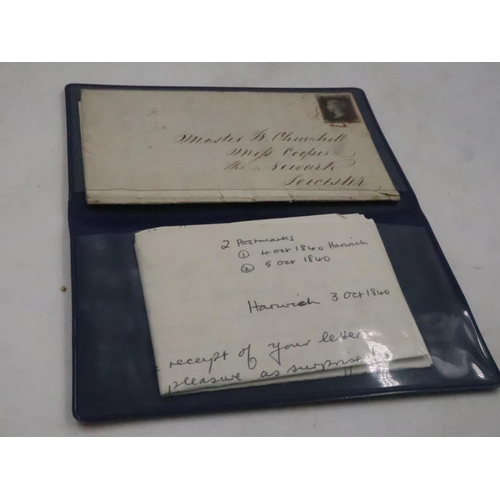 Master B. Churchill
Miss Cooper
The Newark
Leicester
2 Postmarks
① 4 Oct 1840 Harwich
② 5 Oct 1840
Harwich 3 Oct 1840
receipt of your letter
pleasure as surprise